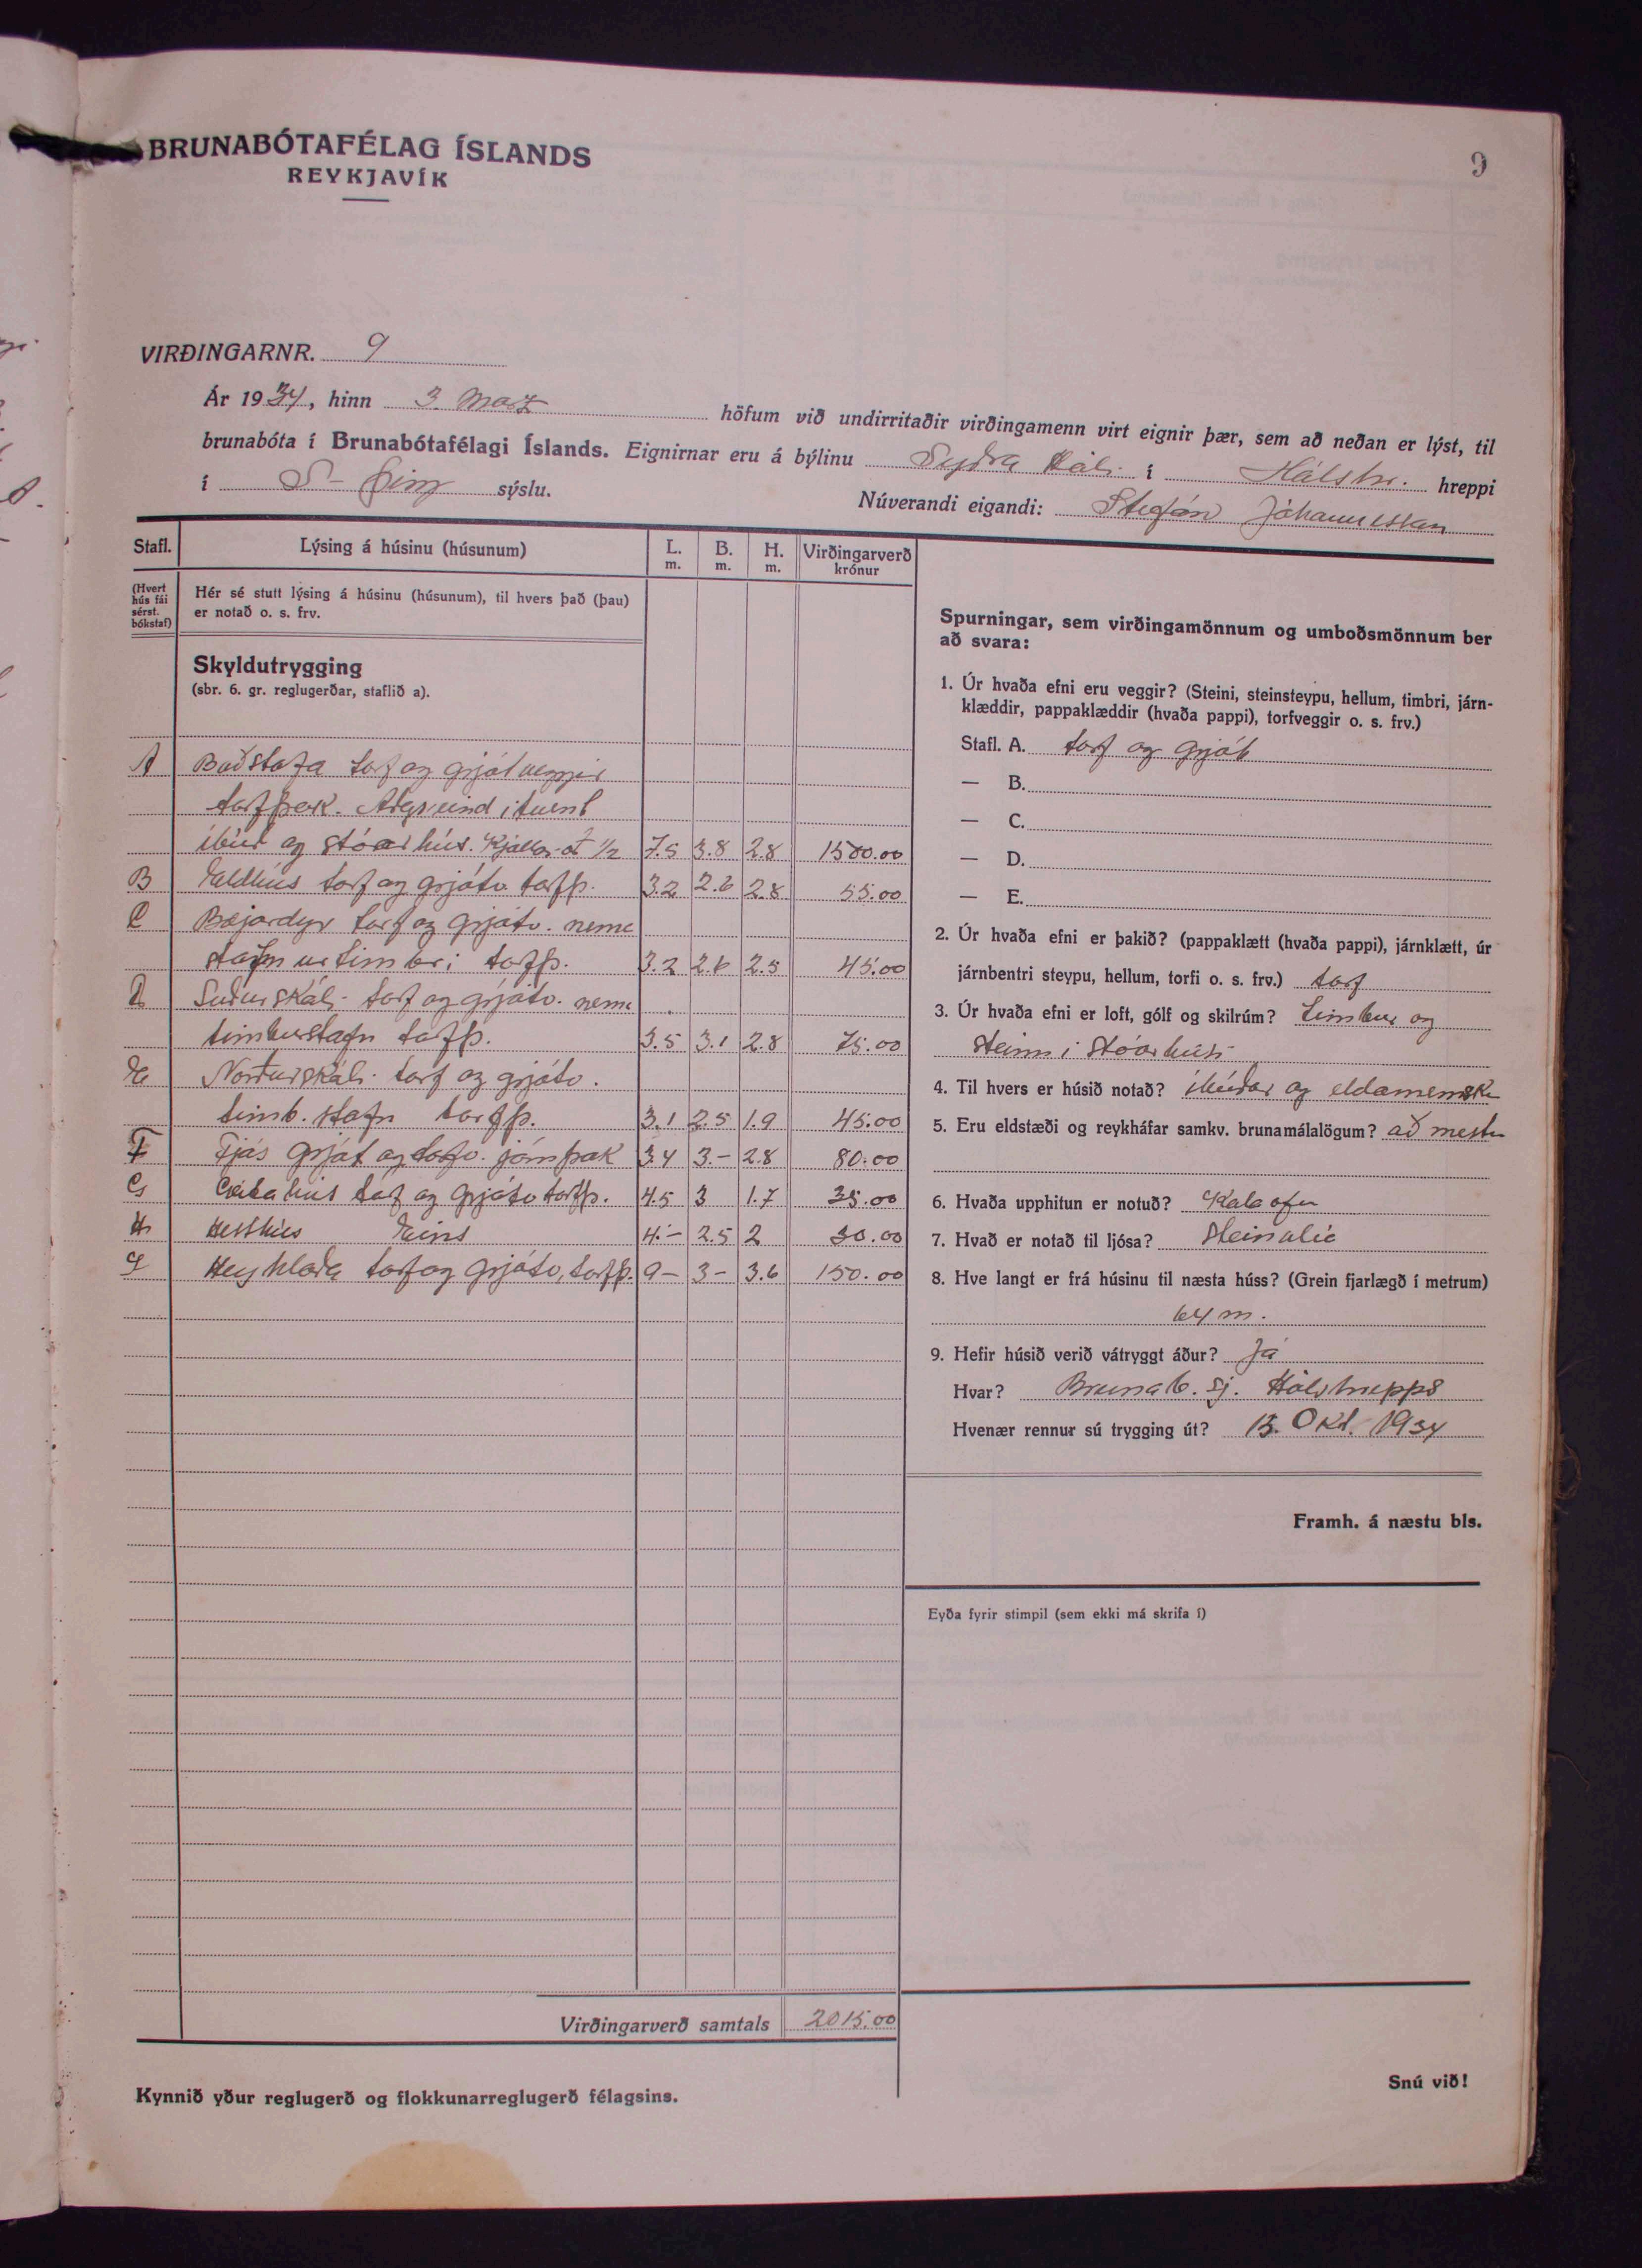 BRUNABÓTAFÉLAG ÍSLANDS
REYKJAVÍK
9
VIRÐINGARNR. 9
Ár 1934, hinn 3. Marz höfum við undirritaðir virðingamenn virt eignir þær, sem að neðan er lýst, til
brunabóta í Brunabótafélagi Íslands. Eignirnar eru á býlinu Syðra Hóli í Hálshr. hreppi
í S-Þing sýslu.
Núverandi eigandi: Stefán Jóhannesson
Stafl. Lýsing á húsinu (húsunum) L. m. B. m. H. m. Virðingarverð krónur
(Hvert hús fái sérst. bókstaf)
Hér sé stutt lýsing á húsinu (húsunum), til hvers það (þau)
er notað o. s. frv.
Skyldutrygging
(sbr. 6. gr. reglugerðar, staflið a).
A Baðstofa torf og grjótveggir
torfþak.
íbúð og stóarhús. Kjallari 1/2 7.5 3.8 2.8 1500.00
B Eldhús torf og grjótv. torfþ. 3.2 2.6 2.8 55.00
C Bæjardyr torf og grjótv. nema
stafn úr timbri torfþ. 3.2 2.6 2.5 45.00
D Suðurskáli torf og grjótv. nema
timburstafn torfþ. 3.5 3.1 2.8 75.00
E Norðurskáli torf og grjótv.
timb. stafn torfþ. 3.1 2.5 1.9 45.00
F Fjós grjót og torfv. járnþak 3.4 3.- 2.8 80.00
G hús torf og grjótv torfþ. 4.5 3 1.7 35.00
H Hesthús Eins 4.- 2.5 2 30.00
Heyhlaða torf og grjótv, torfþ. 9- 3- 3.6 150.00
Virðingarverð samtals 2015.00
Kynnið yður reglugerð og flokkunarreglugerð félagsins.
Spurningar, sem virðingamönnum og umboðsmönnum ber
að svara:
1. Úr hvaða efni eru veggir? (Steini, steinsteypu, hellum, timbri, járn-
klæddir, pappaklæddir (hvaða pappi), torfveggir o. s. frv.)
Stafl. A. torf og grjót
— B.
— C.
— D.
— E.
2. Úr hvaða efni er þakið? (pappaklætt (hvaða pappi), járnklætt, úr
járnbentri steypu, hellum, torfi o. s. frv.) torf
3. Úr hvaða efni er loft, gólf og skilrúm? Timbur og
steinn í stóarhúsi
4. Til hvers er húsið notað? íbúðar og eldamensku
5. Eru eldstæði og reykháfar samkv. brunamálalögum? að mestu
6. Hvaða upphitun er notuð? Kolaofn
7. Hvað er notað til ljósa? Steinolía
8. Hve langt er frá húsinu til næsta húss? (Grein fjarlægð í metrum)
64 m.
9. Hefir húsið verið vátryggt áður? Já
Hvar? Brunab. sj. Hálshrepps
Hvenær rennur sú trygging út? 13. Okt. 1934
Framh. á næstu bls.
Eyða fyrir stimpil (sem ekki má skrifa í)
Snú við!